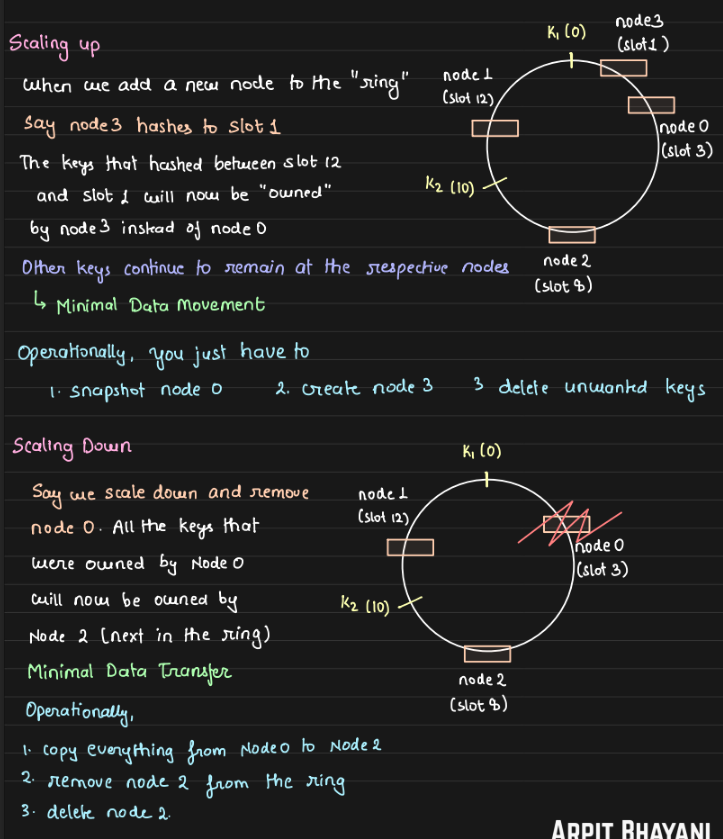 Scaling up
When we add a new node to the "ring"
Say node3 hashes to slot 1
The keys that hashed between slot 12
and slot 1 will now be "owned"
by node 3 instead of node 0
Other keys continue to remain at the respective nodes
↳ Minimal Data Movement
K₁ (0)
node3
(slot 1)
node 1
(slot 12)
node 0
(slot 3)
K₂ (10)
node 2
(slot 8)
Operationally, you just have to
1. snapshot node 0 2. create node 3 3 delete unwanted keys
Scaling Down
Say we scale down and remove
node 0. All the keys that
were owned by Node 0
will now be owned by
Node 2 (next in the ring)
Minimal Data Transfer
K₁ (0)
node 1
(slot 12)
node 0
(slot 3)
K₂ (10)
node 2
(slot 8)
Operationally,
1. copy everything from Node 0 to Node 2
2. remove node 2 from the ring
3. delete node 2.
ARPIT BHAYANI